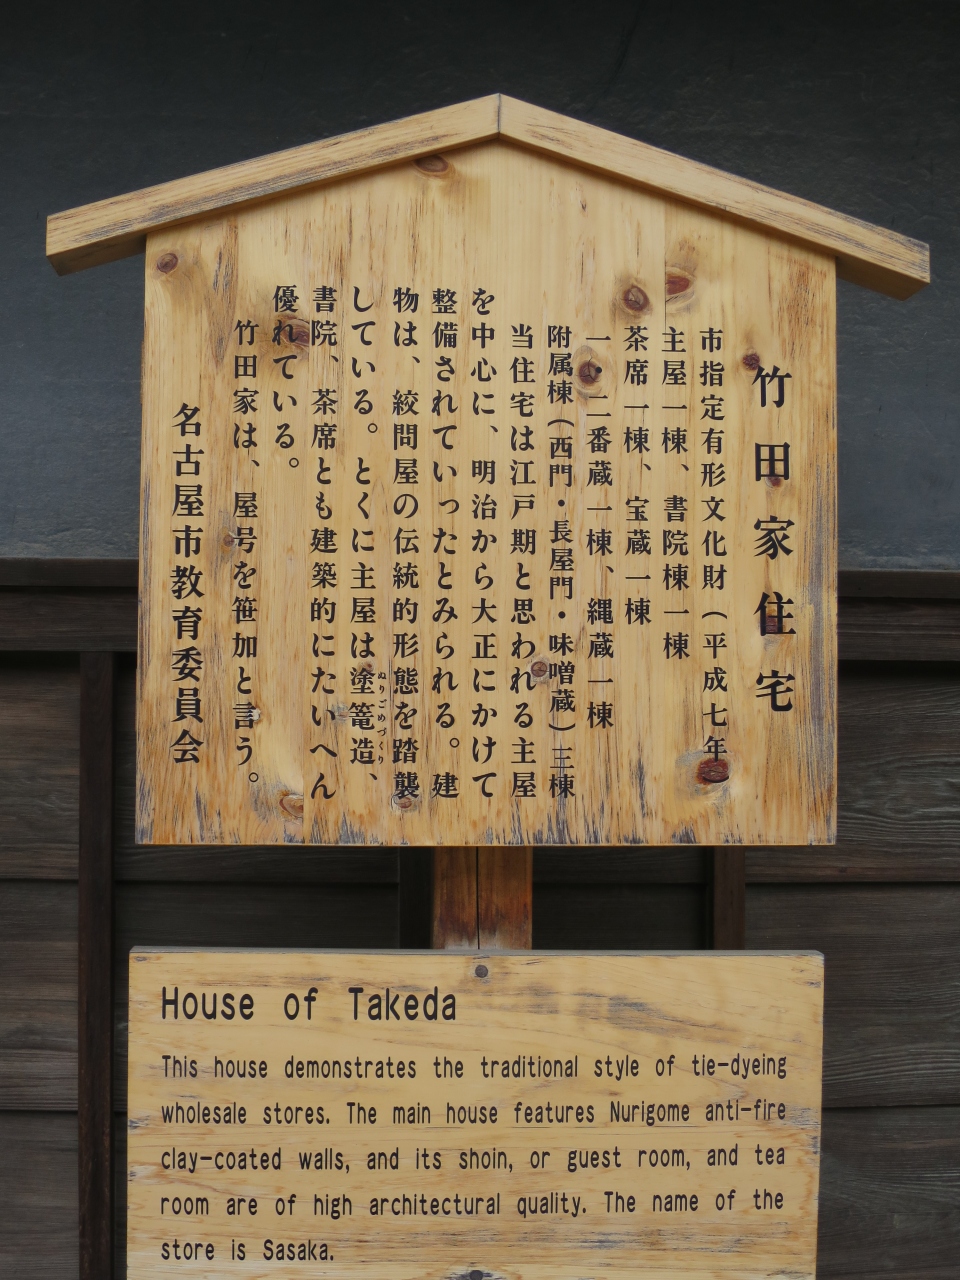 竹田家住宅
市指定有形文化財（平成七年
主屋一棟、書院棟一棟
茶席一棟、宝蔵一棟
一・二番蔵一棟、縄蔵一棟
附属棟（西門・長屋門・味噌蔵）三棟
当住宅は江戸期と思われる主屋
を中心に、明治から大正にかけて
整備されていったとみられる。建
物は、絞問屋の伝統的形態を踏襲
している。とくに主屋は塗篭造、
ぬりごめづくり
書院、茶席とも建築的にたいへん
優れている。
竹田家は、屋号を笹加と言う。
名古屋市教育委員会
House of Takeda
This house demonstrates the traditional style of tie-dyeing
wholesale stores. The main house features Nurigome anti-fire
clay-coated walls, and its shoin, or guest room, and tea
room are of high architectural quality. The name of the
store is Sasaka.